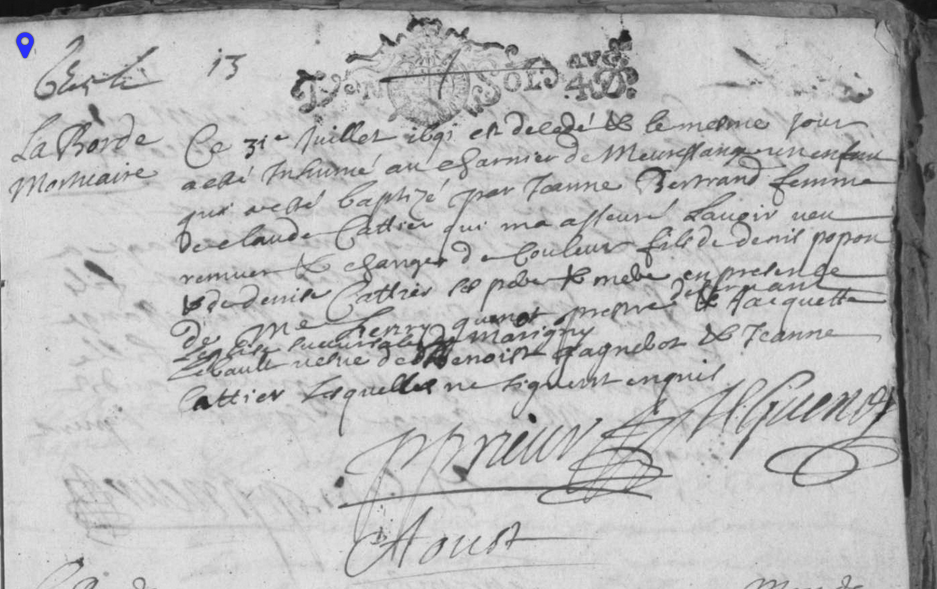 13
UN SOL
AVG 4 D
La Borde
Mortuaire
Ce 31e Juillet 1691 est decedé & le mesme jour
a esté Inhumé au charnier de Meursange un enfan
qui a esté baptizé par Jeanne Bertrand femme
de claude Cattier qui ma asseuré Lauoir veu
remuer & changer de Couleur fils de denis popon
& de denise Cattier ses pere & mere en presence
de Me henry quenot prestre deseruant
Leglise succursale de Marigny & Jacquette
Lebault vefue de Benoist gagnebot & Jeanne
Cattier Lesquelles ne signent enquis
Prieur H Guenot
Aoust